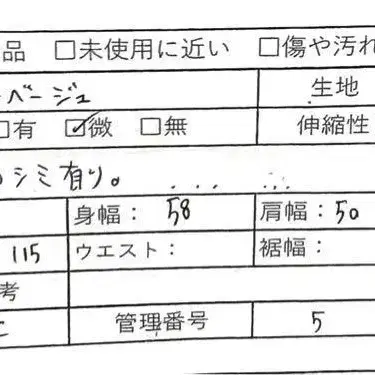 品 □未使用に近い □傷や汚れ
ベージュ 生地
□有 ☑微 □無 伸縮性
シミ有り。
身幅： 58 肩幅：50
115 ウエスト： 裾幅：
考
管理番号 5